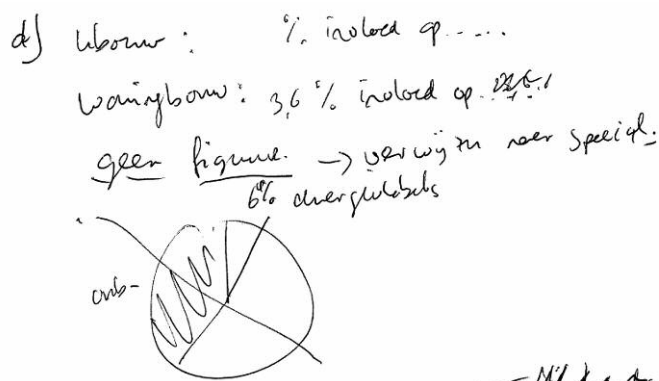 d) Ubouw: % invloed op .....
Woningbouw: 3,6 % invloed op
geen figuur. → verwijzen naar special.
6% energielabels